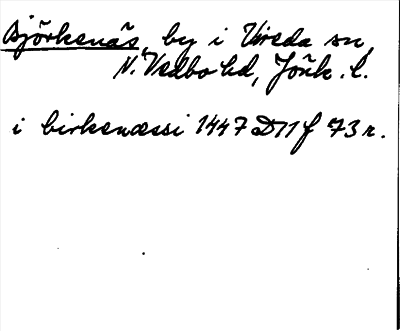 Björkenäs, by i Vireda sn,
N. Vedbo hd, Jönk. l.
i birkenæssi 1447 D11 f 73 r.